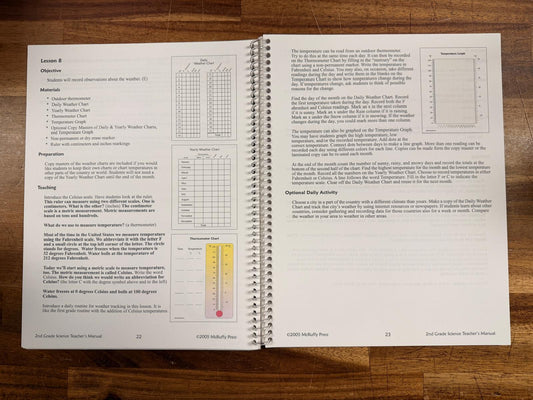 Lesson 8
Objective
Students will record observations about the weather. (E)
Materials
* Outdoor thermometer
* Daily Weather Chart
* Yearly Weather Chart
* Thermometer Chart
* Temperature Graph
* Optional Copy Masters of Daily & Yearly Weather Charts,
and Temperature Graph
* Non-permanent or dry erase marker
* Ruler with centimeters and inches markings
Preparation
Copy masters of the weather charts are included if you would
like students to keep their own charts or chart temperatures in
other parts of the country or world. Students will not need a
copy of the Yearly Weather Chart until the end of the month.
Teaching
Introduce the Celsius scale. Have students look at the ruler.
This ruler can measure using two different scales. One is
centimeters. What is the other? (inches) The centimeter
scale is a metric measurement. Metric measurements are
based on tens and hundreds.
What do we use to measure temperature? (a thermometer)
Most of the time in the United States we measure temperature
using the Fahrenheit scale. We abbreviate it with the letter F
and a small circle at the top left corner of the letter. The circle
stands for degrees. Water freezes when the temperature is
32 degrees Fahrenheit. Water boils at the temperature of
212 degrees Fahrenheit.
Today we'll start using a metric scale to measure temperature,
too. The metric measurement is called Celsius. Write the word
Celsius. How do you think we would write an abbreviation for
Celsius? (the letter C with the degree symbol above and to the left)
Water freezes at 0 degrees Celsius and boils at 100 degrees
Celsius.
Introduce a daily routine for weather tracking in this lesson. It is
like the first grade routine with the addition of Celsius temperatures.
Daily
Weather Chart
Yearly Weather Chart
Thermometer Chart
2nd Grade Science Teacher's Manual
22
©2005 McRuffy Press
The temperature can be read from an outdoor thermometer.
Try to do this at the same time each day. It can then be recorded
on the Thermometer Chart by filling in the "mercury" on the
chart using a non-permanent marker. Write the temperature in
Fahrenheit and Celsius. You may also, on occasion, take different
readings during the day and write them in the blanks on the
Temperature Chart to show how temperatures change during the
day. If temperatures change, ask students to think of possible
reasons for the change.
Find the day of the month on the Daily Weather Chart. Record
the first temperature taken during the day. Record both the F
ahrenheit and Celsius readings. Mark an x in the next column
if it is sunny. Mark an x under the Rain column if it is raining.
Mark an x under the Snow column if it is snowing. If the weather
changes during the day, you could mark more than one column.
The temperature can also be graphed on the Temperature Graph.
You may have students graph the high temperature, low
temperature, and/or the recorded temperature. Add dots at the
correct temperature. Connect dots between days to make a line graph. More than one reading can be
recorded each day using different colors for each line. Copies can be made form the copy master or the
laminated copy can be to used each month.
At the end of the month count the number of sunny, rainy, and snowy days and record the totals at the
bottom of the second half of the chart. Find the highest temperature for the month and the lowest temperature
of the month. Record all the numbers on the Yearly Weather Chart. Choose to record temperatures in either
Fahrenheit or Celsius. A line follows the word Temperature. Fill in the letter F or C to indicate the
temperature scale. Close off the Daily Weather Chart and reuse it for the next month.
Optional Daily Activity
Choose a city in a part of the country with a different climate than yours. Make a copy of the Daily Weather
Chart and track that city's weather by using internet resources or newspapers. If students learn about other
countries, consider gathering and recording data for those countries also for a week or month. Compare
the weather in your area to weather in other areas.
Temperature Graph
©2005 McRuffy Press
23
2nd Grade Science Teacher's Manual